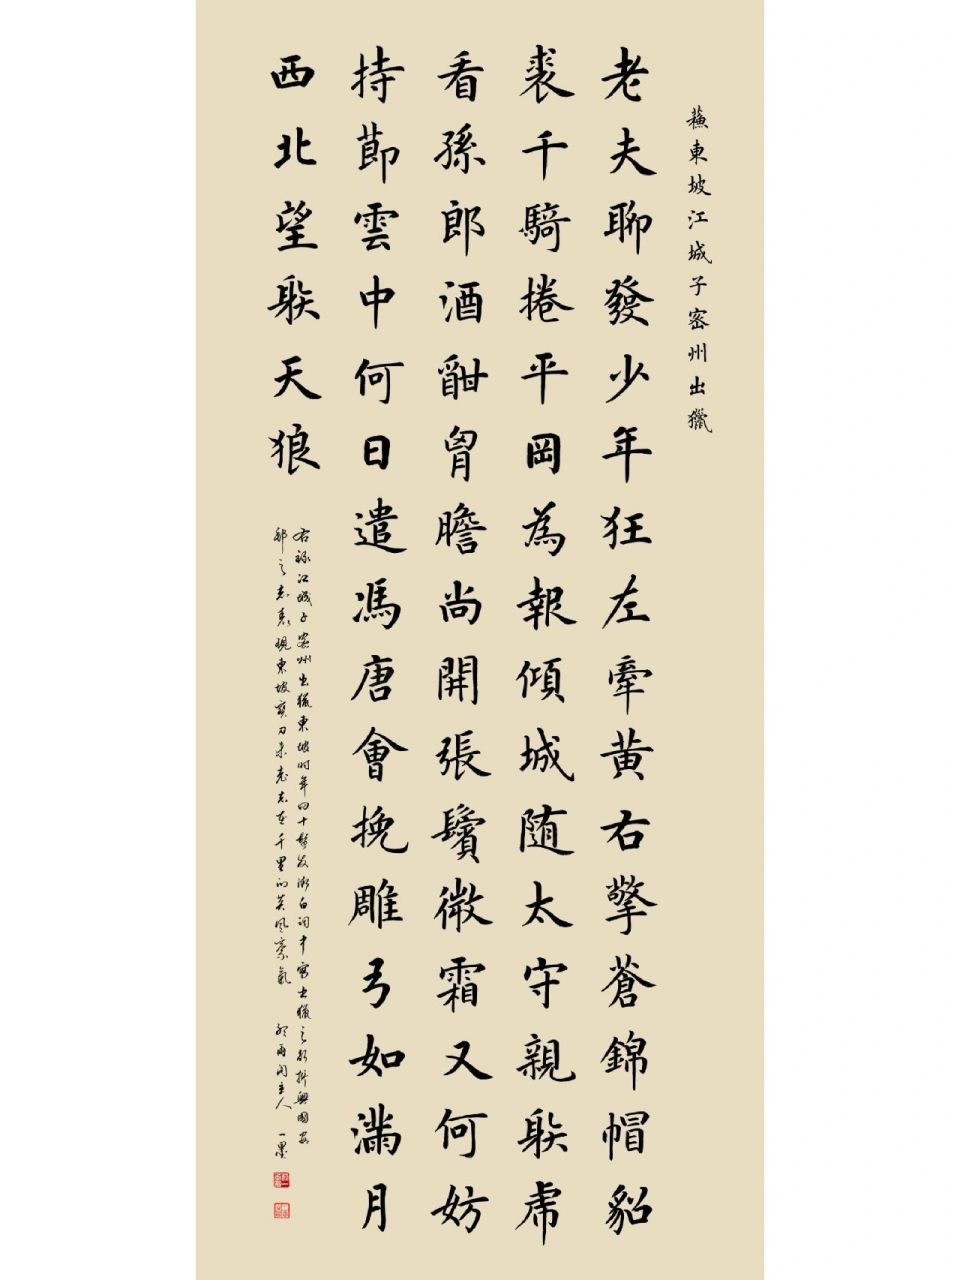 蘓東坡江城子密州出獵
老夫聊發少年狂左牽黃右擎蒼錦帽貂
裘千騎捲平岡為報傾城隨太守親射虎
看孫郎酒酣胷膽尚開張鬢微霜又何妨
持節雲中何日遣馮唐會挽雕弓如滿月
西北望射天狼
右録江城子密州出獵東坡时年四十鬢发漸白词中寫出獵之抒興國安
邦之志表現東坡寶刀未老志在千里的英風豪氣 聽雨閣主人 一墨